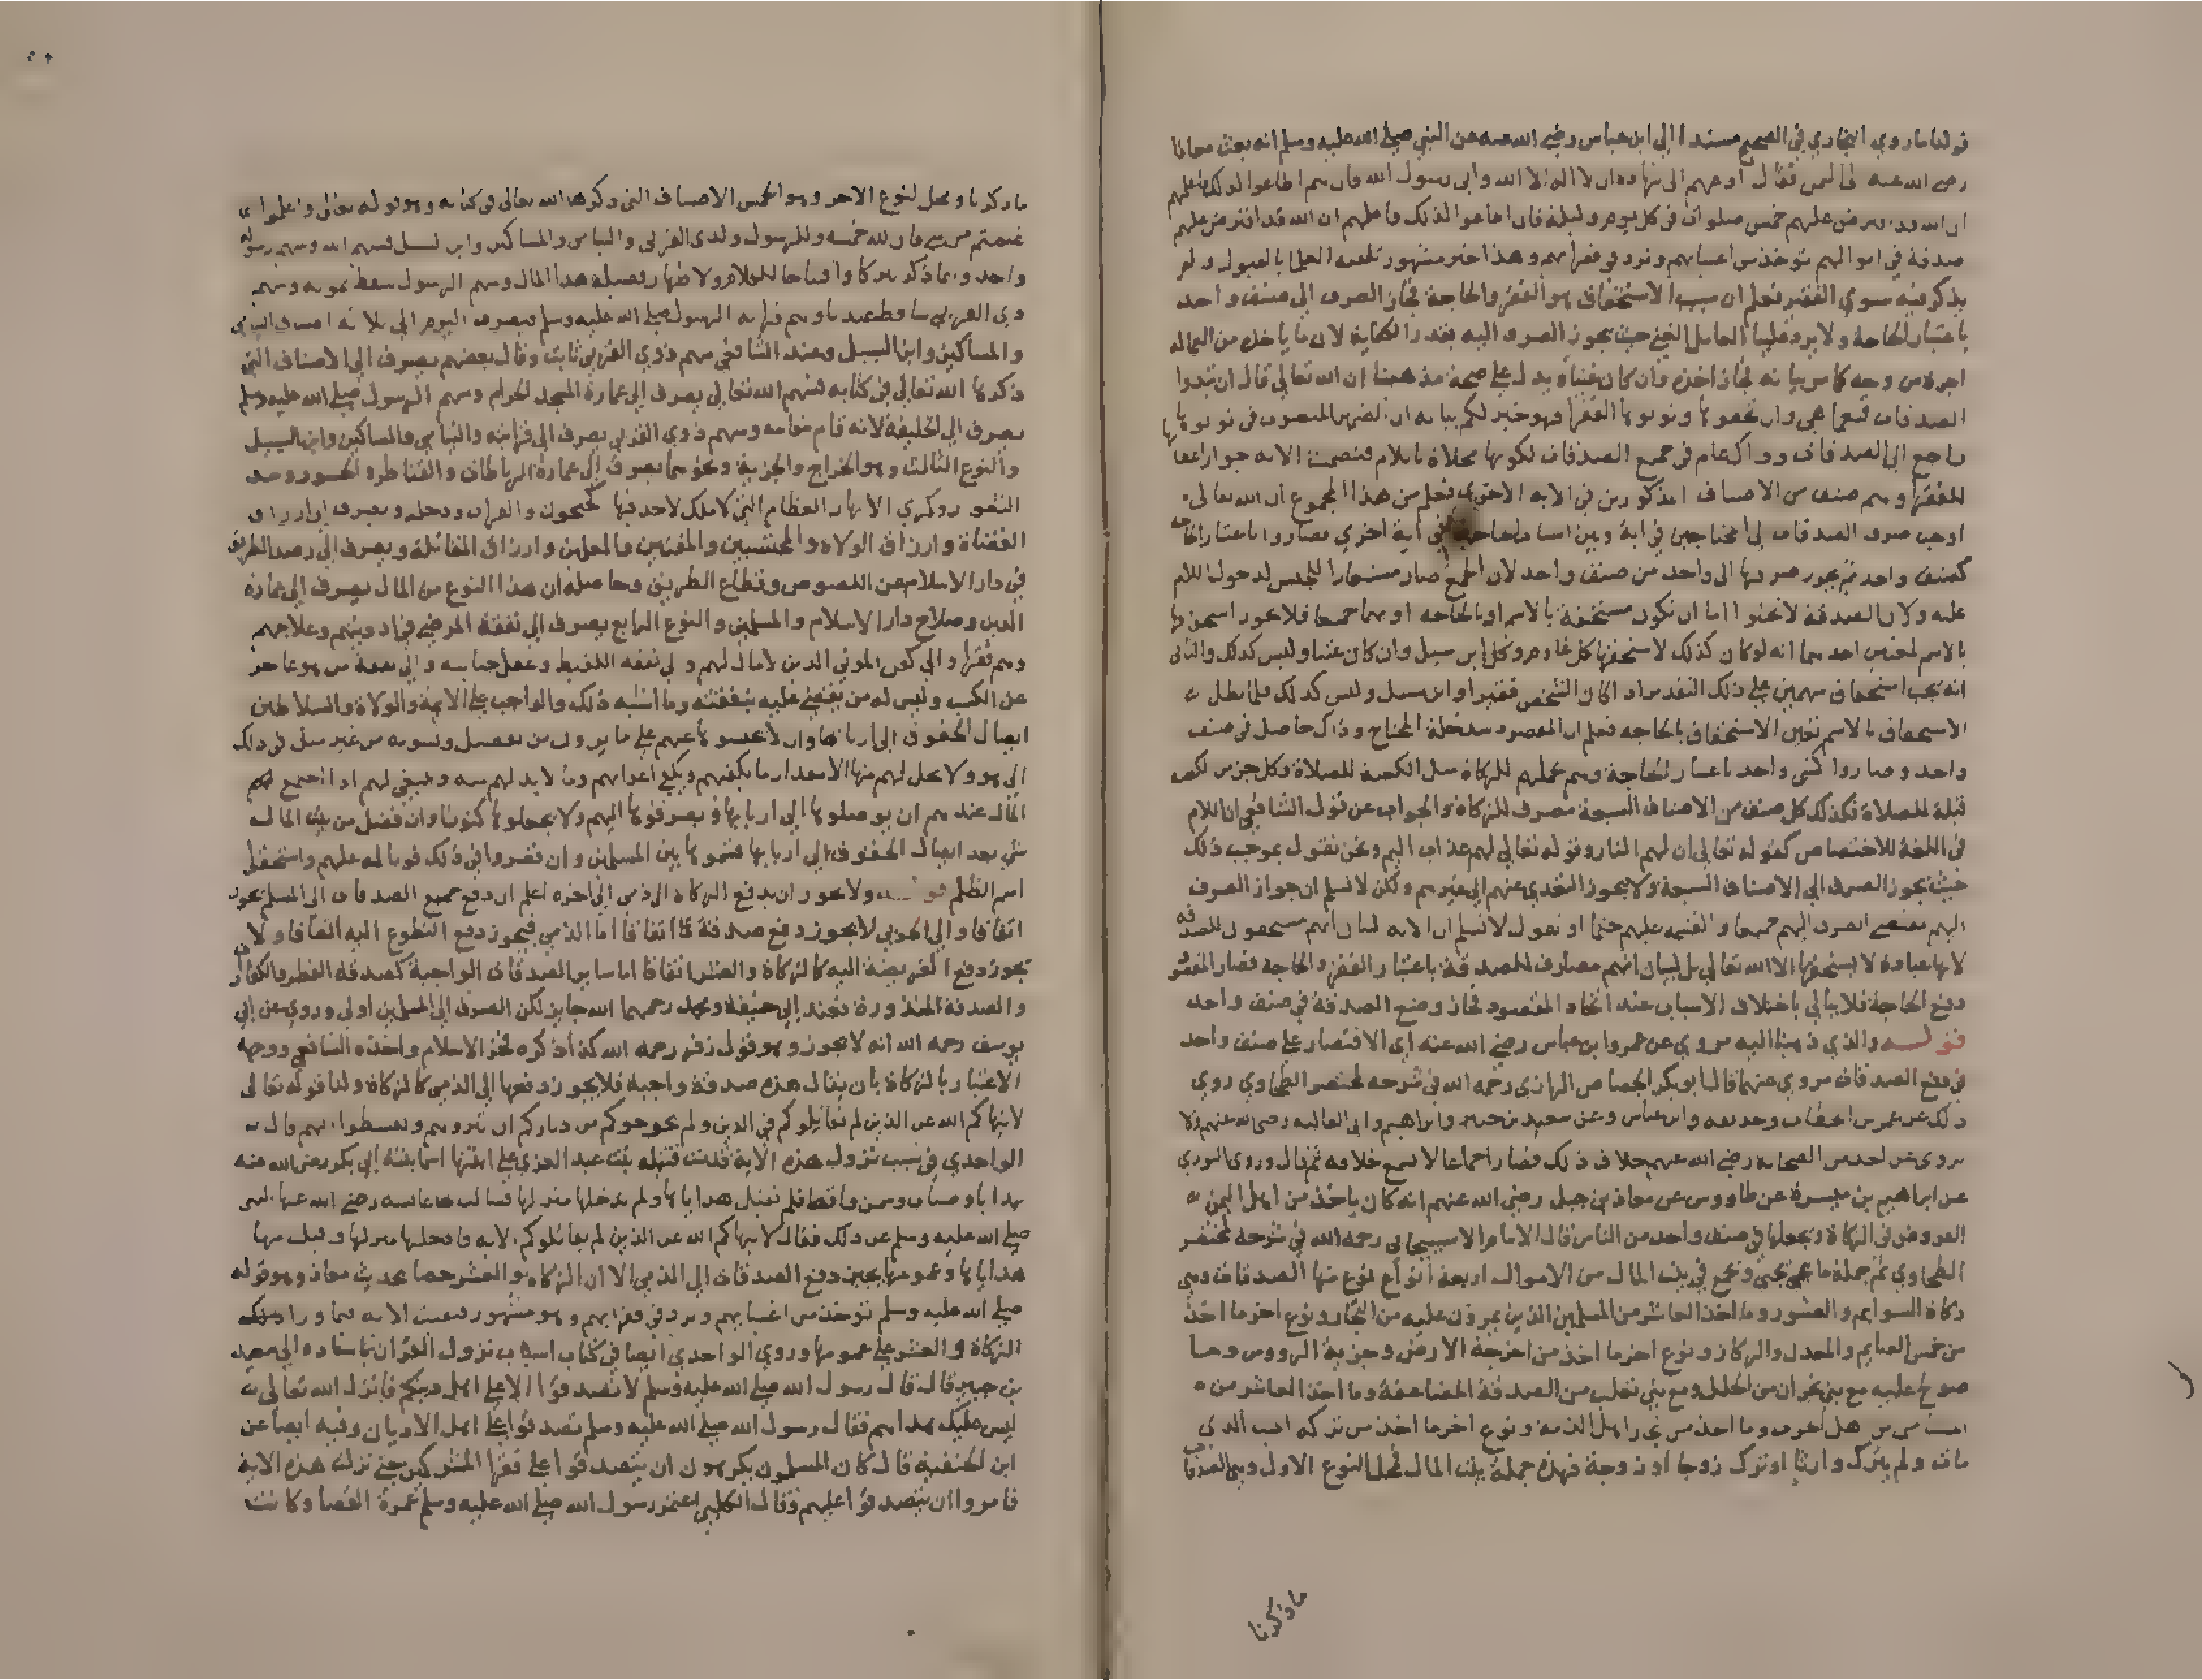 قولنا ما روي البخاري في الصحيح مسندا الي ابن عباس رضي الله عنه عن النبي صلي الله عليه وسلم انه بعث معاذا
رضي الله عنه الي اليمن فقال ادعهم الي شهادة ان لا اله الا الله واني رسول الله فان هم اطاعوا لذلك فاعلمهم
ان الله قد افترض عليهم خمس صلوات في كل يوم وليلة فان اطاعوا لذلك فاعلمهم ان الله قد افترض عليهم
صدقة في اموالهم تؤخذ من اغنياهم وترد في فقراهم وهذا خبر مشهور تلقته العلما بالقبول ولم
يذكر فيه سوي الفقير فعلم ان سبب الاستحقاق هو الفقر والحاجة فجاز الصرف الي صنف واحد
باعتبار الحاجة ولا يرد علينا العامل الغني حيث يجوز الصرف اليه بقدر الكفاية لان ما ياخذه من العمالة
اجرة من وجه كما مر بيانه فجاز اخذه وان كان غنيا ويدل علي صحة مذهبنا ان الله تعالي قال ان تبدوا
الصدقات فنعما هي وان تخفوها وتوتوها الفقرا فهو خير لكم بيانه ان الضمير المنصوب في توتوها
راجع الي الصدقات وذاك عام في جميع الصدقات لكونها محلاة باللام فتضمنت الاية جواز اعطائها
للفقرا وهم صنف من الاصناف المذكورين في الاية الاخري فعلم من هذا المجموع ان الله تعالي
اوجب صرف الصدقات الي المحتاجين في اية وبين اسباب الحاجة في اية اخري فصاروا باعتبار الحاجة
كصنف واحد ثم يجوز صرفها الي واحد من صنف واحد لان الجمع صار مستعارا للجنس لدخول اللام
عليه ولان الصدقة لا تخلوا اما ان تكون مستحقة بالاسم او بالحاجة او بهما جميعا فلا يجوز استحقاقها
بالاسم لمعنيين احدهما انه لو كان كذلك لاستحقها كل غارم وكل ابن سبيل وان كان غنيا وليس كذلك والثاني
انه يجب استحقاق سهمين علي ذلك التقدير اذا كان الشخص فقيرا وابن سبيل وليس كذلك فلما بطل
الاستحقاق بالاسم تعين الاستحقاق بالحاجة فعلم ان المقصود سد خلة المحتاج وذاك حاصل في صنف
واحد وصاروا كشي واحد باعتبار الحاجة وهم بجملتهم للزكاة مثل الكعبة للصلاة وكل جز من الكعبة
قبلة للصلاة فكذلك كل صنف من الاصناف السبعة مصرف للزكاة والجواب عن قول الشافعي ان اللام
في اللغة للاختصاص كقوله تعالي ان لهم النار وقوله تعالي لهم عذاب اليم ونحن نقول بموجب ذلك
حيث يجوز الصرف الي الاصناف السبعة ولا يجوز التعدي عنهم الي غيرهم ولكن لا نسلم ان جواز الصرف
اليهم يقتضي الصرف اليهم جميعا والقسمة عليهم حتما او نقول لا نسلم ان الاية لبيان انهم مستحقون للصدقة
لانها عبادة لا يستحقها الا الله تعالي بل لبيان انهم مصارف للصدقة باعتبار الفقر والحاجة فصار المقصود
دفع الحاجة فلا يبالي باختلاف الاسباب عند اتحاد المقصود فجاز وضع الصدقة في صنف واحد
قوله والذي ذهبنا اليه مروي عن عمر وابن عباس رضي الله عنه اي الاقتصار علي صنف واحد
في دفع الصدقات مروي عنهما قال ابو بكر الجصاص الرازي رحمه الله في شرحه لمختصر الطحاوي روي
ذلك عن عمر بن الخطاب وحذيفة وابن عباس وعن سعيد بن جبير وابراهيم وابي العالية رضي الله عنهم ولا
يروي عن احد من الصحابة رضي الله عنهم خلاف ذلك فصار اجماعا لا يسع خلافه ثم قال وروي الثوري
عن ابراهيم بن ميسرة عن طاووس عن معاذ بن جبل رضي الله عنهم انه كان ياخذ من اهل اليمن
العروض في الزكاة ويجعلها في صنف واحد من الناس قال الامام الاسبيجابي رحمه الله في شرحه لمختصر
الطحاوي ثم جملة ما يجبي ويجمع في بيت المال من الاموال اربعة انواع نوع منها الصدقات وهي
زكاة السوايم والعشور وما اخذ العاشر من المسلمين الذين يمرون عليه من التجار ونوع اخر ما اخذ
من خمس الغنايم والمعدن والركاز ونوع اخر ما اخذ من اخرجة الارض وجزية الرووس وما
صولح عليه مع بني نجران من الحلل ومع بني تغلب من الصدقة المضاعفة وما اخذ العاشر من
المستامنين من اهل الحرب وما اخذ من تجار اهل الذمة ونوع اخر ما اخذ من تركة الميت الذي
مات ولم يترك وارثا او ترك زوجا او زوجة فهذه جملة بيت المال فمحل النوع الاول وهي الصدقات
ماذكرنا
ما ذكرنا ومحل النوع الاخر وهو الخمس الاصناف التي ذكرها الله تعالي في كتابه وهو قوله تعالي واعلموا انما
غنمتم من شي فان لله خمسه وللرسول ولذي القربي واليتامي والمساكين وابن السبيل فسهم الله وسهم رسوله
واحد وانما ذكر تبركا وافتتاحا للكلام ولاظهار فضيلة هذا المال وسهم الرسول سقط بموته وسهم
ذوي القربي ساقط عندنا وسهم قرابة الرسول صلي الله عليه وسلم فيصرف اليوم الي ثلاثة اصناف اليتامي
والمساكين وابن السبيل وعند الشافعي سهم ذوي القربي ثابت وقال بعضهم يصرف الي الاصناف التي
ذكرها الله تعالي في كتابه فسهم الله تعالي يصرف الي عمارة المسجد الحرام وسهم الرسول صلي الله عليه وسلم
يصرف الي الخليفة لانه قام مقامه وسهم ذوي القربي يصرف الي قرابته واليتامي والمساكين وابن السبيل
والنوع الثالث وهو الخراج والجزية ونحوهما يصرف الي عمارة الرباطات والقناطر والجسور وسد
الثغور وكري الانهار العظام التي لا ملك لاحد فيها كجيحون والفرات ودجلة ويصرف الي ارزاق
القضاة وارزاق الولاة والمحتسبين والمفتيين والمعلمين وارزاق المقاتلة ويصرف الي رصد الطريق
في دار الاسلام عن اللصوص وقطاع الطريق وحاصله ان هذا النوع من المال يصرف الي عمارة
الدين وصلاح دار الاسلام والمسلمين والنوع الرابع يصرف الي نفقة المرضي في ادويتهم وعلاجهم
وهم فقرا والي كفن الموتي الذين لا مال لهم والي نفقة اللقيط وعقل جنايته والي نفقة من هو عاجز
عن الكسب وليس له من يقضي عليه بنفقته وما اشبه ذلك والواجب علي الايمة والولاة والسلاطين
ايصال الحقوق الي اربابها وان لا يحبسوها عنهم علي ما يرون من تفضيل وتسوية من غير ميل في ذلك
الي هوي ولا يحل لهم منها الا مقدار ما يكفيهم ويكفي اعوانهم وما لا بد لهم منه وينبغي لهم اذا اجتمع لهم
المال عندهم ان يوصلوها الي اربابها ويصرفوها اليهم ولا يجعلوها كنوزا وان فضل من بيت المال
شي بعد ايصال الحقوق الي اربابها قسموها بين المسلمين وان قصروا في ذلك فوباله عليهم واستحقوا
اسم الظلم قوله ولا يجوز ان يدفع الزكاة الي ذمي الي اخره اعلم ان دفع جميع الصدقات الي المسلم يجوز
اتفاقا والي الحربي لا يجوز دفع صدقة ما اتفاقا اما الذمي فيجوز دفع التطوع اليه اتفاقا ولا
يجوز دفع الفريضة اليه كالزكاة والعشر اتفاقا اما ساير الصدقات الواجبة كصدقة الفطر والكفارات
والصدقة المنذورة فعند ابي حنيفة ومحمد رحمهما الله جايز لكن الصرف الي المسلمين اولي وروي عن ابي
يوسف رحمه الله انه لا يجوز وهو قول زفر رحمه الله كذا ذكره فخر الاسلام واخذه الشافعي ووجهه
الاعتبار بالزكاة بان يقال هذه صدقة واجبة فلا يجوز دفعها الي الذمي كالزكاة ولنا قوله تعالي
لا ينهاكم الله عن الذين لم يقاتلوكم في الدين ولم يخرجوكم من دياركم ان تبروهم وتقسطوا اليهم قال
الواحدي في سبب نزول هذه الاية قدمت قتيلة بنت عبد العزي علي ابنتها اسما بنت ابي بكر رضي الله عنه
بهدايا وضباب وسمن واقط فلم تقبل هداياها ولم تدخلها منزلها فسالت لها عايشة رضي الله عنها النبي
صلي الله عليه وسلم عن ذلك فقال لا ينهاكم الله عن الذين لم يقاتلوكم الاية فادخلتها منزلها وقبلت منها
هداياها وعمومها يجيز دفع الصدقات الي الذمي الا ان الزكاة والعشر خصا بحديث معاذ وهو قوله
صلي الله عليه وسلم تؤخذ من اغنيايهم وترد في فقرايهم وهو مشهور فبقيت الاية فيما ورا ذلك
الزكاة والعشر علي عمومها وروي الواحدي ايضا في كتاب اسباب نزول القران باسناده الي سعيد
بن جبير قال قال رسول الله صلي الله عليه وسلم لا تصدقوا الا علي اهل دينكم فانزل الله تعالي
ليس عليك هداهم فقال رسول الله صلي الله عليه وسلم تصدقوا علي اهل الاديان وفيه ايضا عن
ابن الحنفية قال كان المسلمون يكرهون ان يتصدقوا علي فقرا المشركين حتي نزلت هذه الاية
فامروا ان يتصدقوا عليهم وقال الكلبي اعتمر رسول الله صلي الله عليه وسلم عمرة القضا وكانت